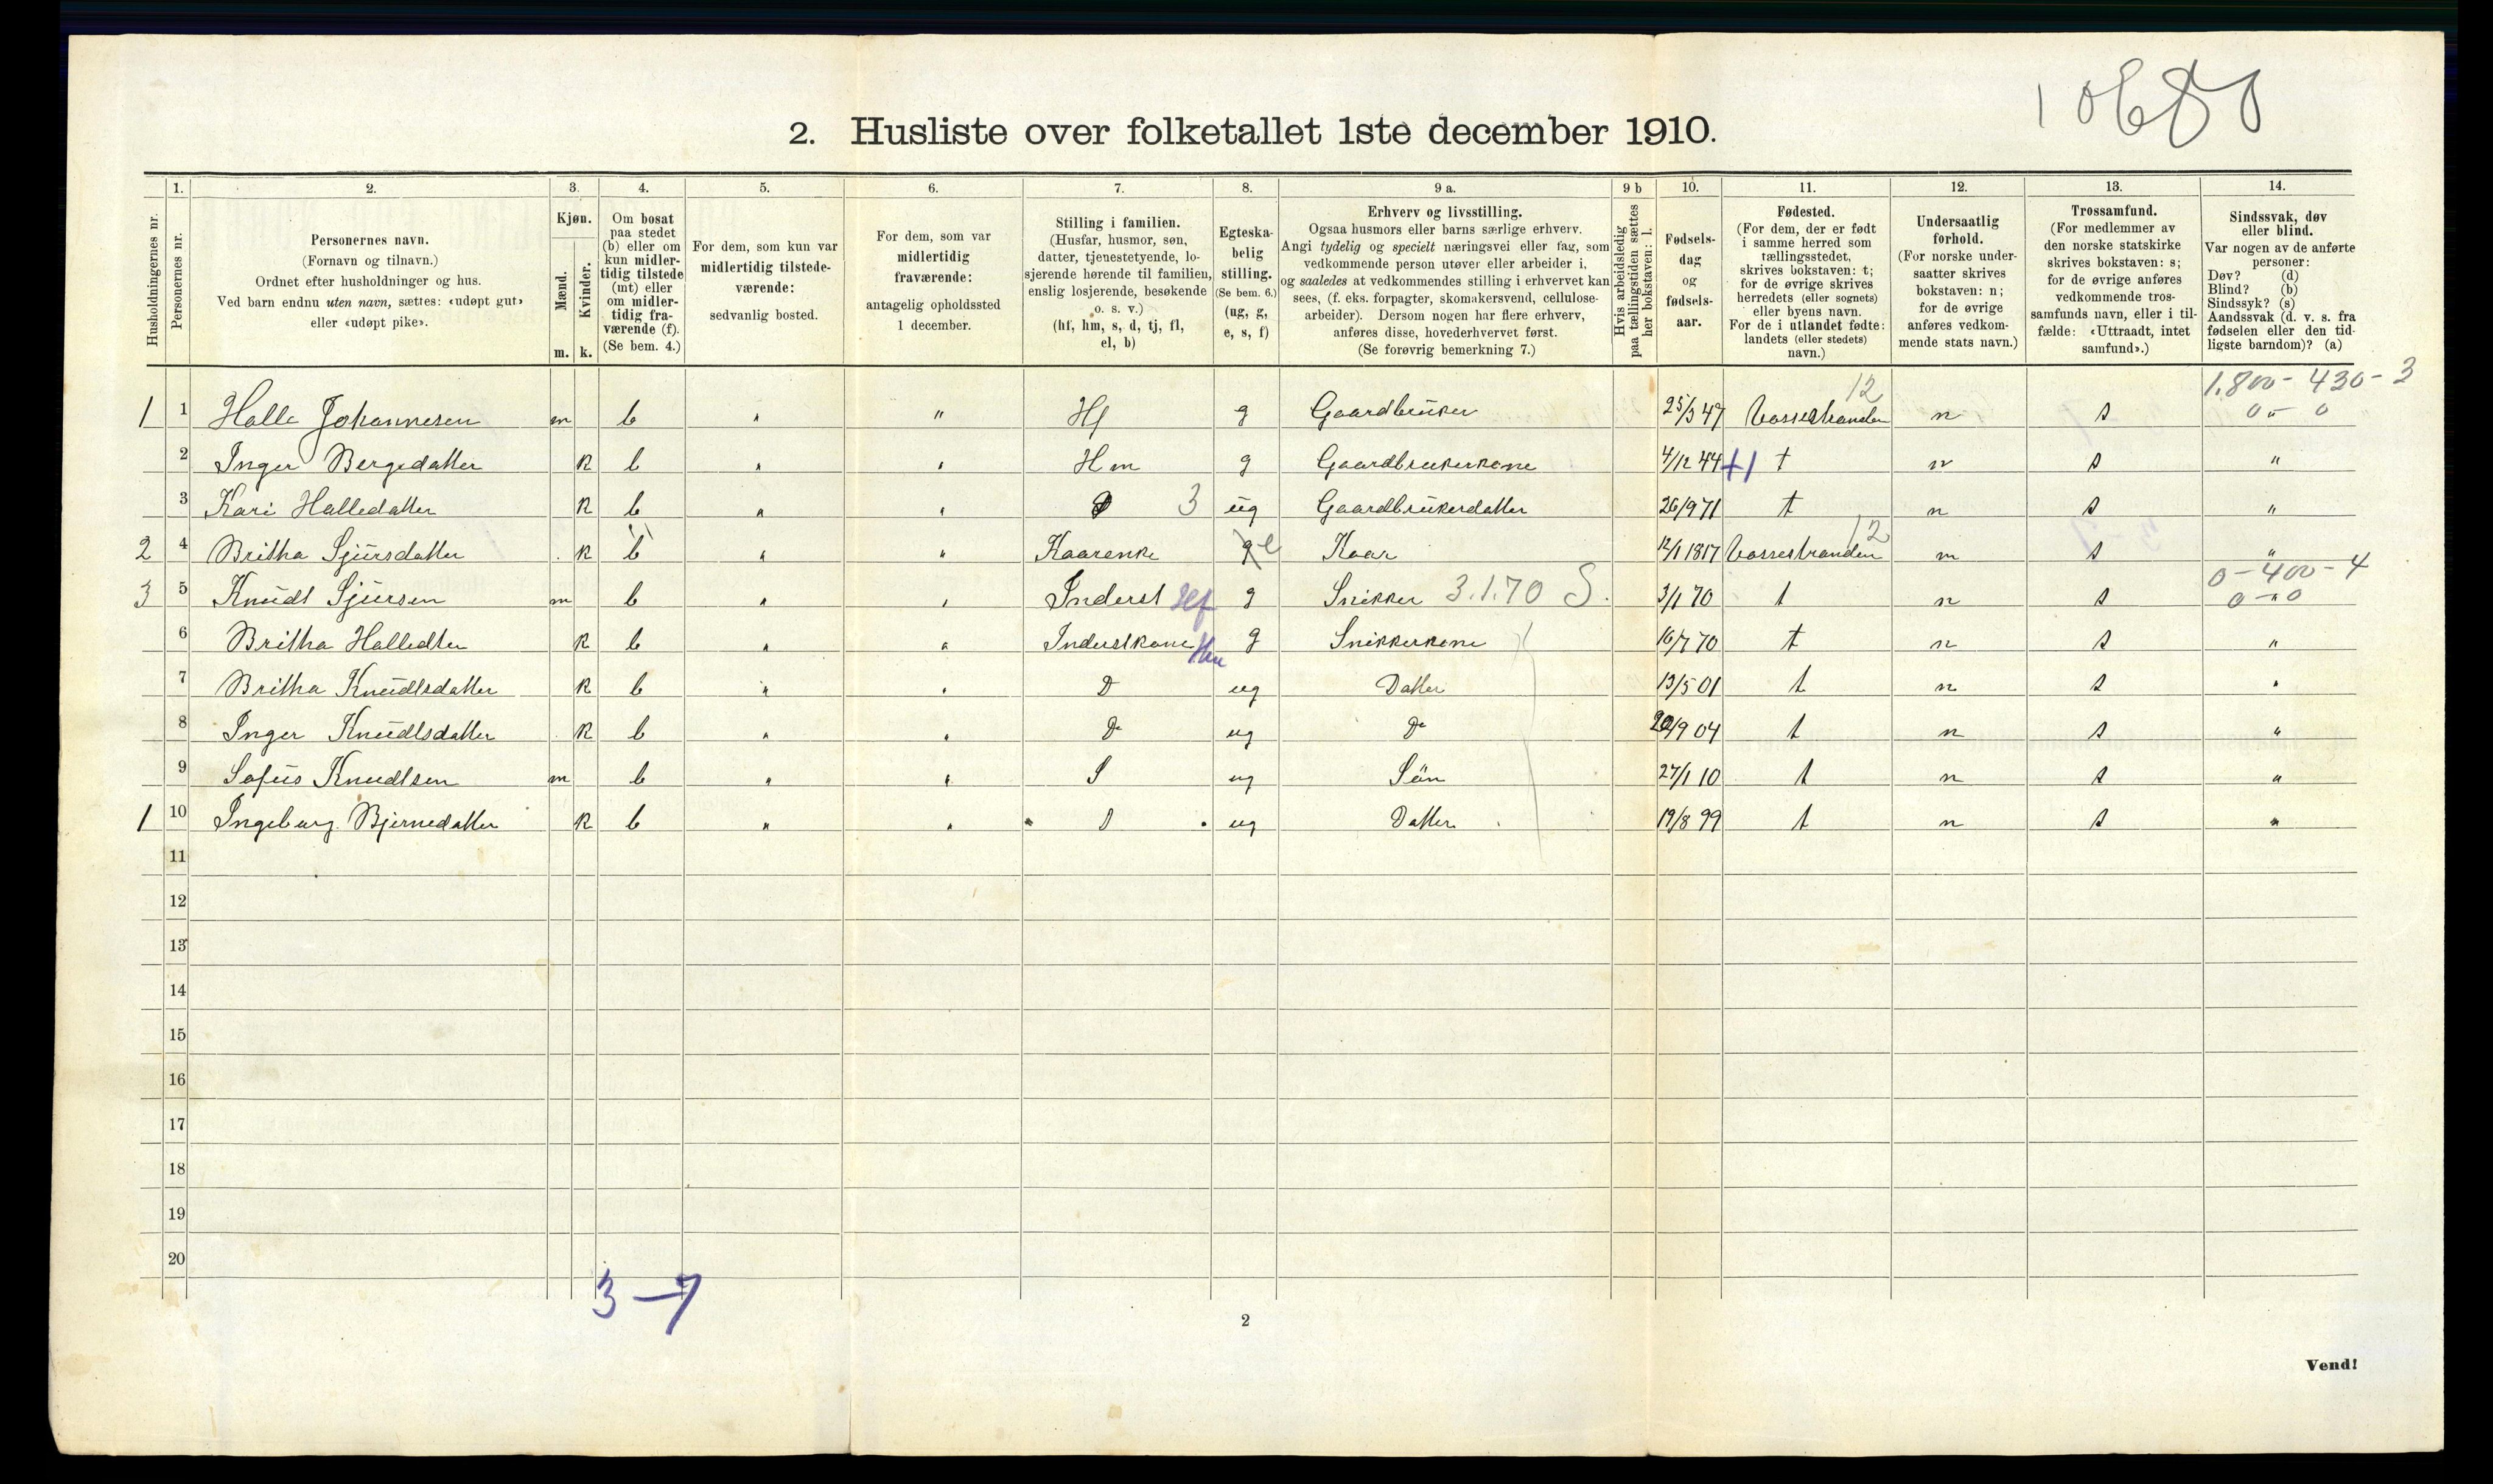 10680
2. Husliste over folketallet 1ste december 1910.
Husholdningernes nr.
1.
Personernes nr.
2.
Personernes navn.
(Fornavn og tilnavn.)
Ordnet efter husholdninger og hus.
Ved barn endnu uten navn, sættes: «udøpt gut»
eller «udøpt pike».
3.
Kjøn.
Mænd.
Kvinder.
m. k.
4.
Om bosat
paa stedet
(b) eller om
kun midler-
tidig tilstede
(mt) eller
om midler-
tidig fra-
værende (f).
(Se bem. 4.)
5.
For dem, som kun var
midlertidig tilstede-
værende:
sedvanlig bosted.
6.
For dem, som var
midlertidig
fraværende:
antagelig opholdssted
1 december.
7.
Stilling i familien.
(Husfar, husmor, søn,
datter, tjenestetyende, lo-
sjerende hørende til familien,
enslig losjerende, besøkende
o. s. v.)
(hf, hm, s, d, tj, fl,
el, b)
8.
Egteska-
belig
stilling.
(Se bem. 6.)
(ug, g,
e, s, f)
9 a.
Erhverv og livsstilling.
Ogsaa husmors eller barns særlige erhverv.
Angi tydelig og specielt næringsvei eller fag, som
vedkommende person utøver eller arbeider i,
og saaledes at vedkommendes stilling i erhvervet kan
sees, (f. eks. forpagter, skomakersvend, cellulose-
arbeider). Dersom nogen har flere erhverv,
anføres disse, hovederhvervet først.
(Se forøvrig bemerkning 7.)
9 b
Hvis arbeidsledig
paa tællingstiden sættes
her bokstaven: l.
10.
Fødsels-
dag
og
fødsels-
aar.
11.
Fødested.
(For dem, der er født
i samme herred som
tællingsstedet,
skrives bokstaven: t;
for de øvrige skrives
herredets (eller sognets)
eller byens navn.
For de i utlandet fødte:
landets (eller stedets)
navn.)
12.
Undersaatlig
forhold.
(For norske under-
saatter skrives
bokstaven: n;
for de øvrige
anføres vedkom-
mende stats navn.)
13.
Trossamfund.
(For medlemmer av
den norske statskirke
skrives bokstaven: s;
for de øvrige anføres
vedkommende tros-
samfunds navn, eller i til-
fælde: «Uttraadt, intet
samfund».)
14.
Sindssvak, døv
eller blind.
Var nogen av de anførte
personer:
Døv? (d)
Blind? (b)
Sindssyk? (s)
Aandssvak (d. v. s. fra
fødselen eller den tid-
ligste barndom)? (a)
12 1.800 - 430 - 3
1 1 Halle Johannesen m b " " Hf g Gaardbrüker 25/3 47 Vossestranden n s 0 " 0
2 Inger Bergedatter k b " " Hm g Gaardbrukerkone 4/12 44 +1 t n s "
3 Kari Halledatter k b " " D 3 ug Gaardbrükerdatter 26/9 71 t n s "
12
2 4 Britha Sjürsdatter k b " " Kaarenke g e Kaar 12/1 1817 Vossestranden n s "
0 - 400 - 4
3 5 Knüdt Sjürsen m b " " Inderst Hf g Snikker 3.1.70 S. 3/1 70 t n s 0 " 0
6 Britha Halledtter k b " " Inderstkone Hm g Snikkerkone 16/7 70 t n s "
7 Britha Knüdtsdatter k b " " D ug Datter 13/5 01 t n s "
8 Inger Knüdtsdatter k b " " Do ug Do 20/9 04 t n s "
9 Sofüs Knudtsen m b " " S ug Sün 27/1 10 t n s "
1 10 Ingeburg Bjørnedatter k b " " D ug Datter 19/8 99 t n s "
11
12
13
14
15
16
17
18
19
20
3 - 7
2
Vend!